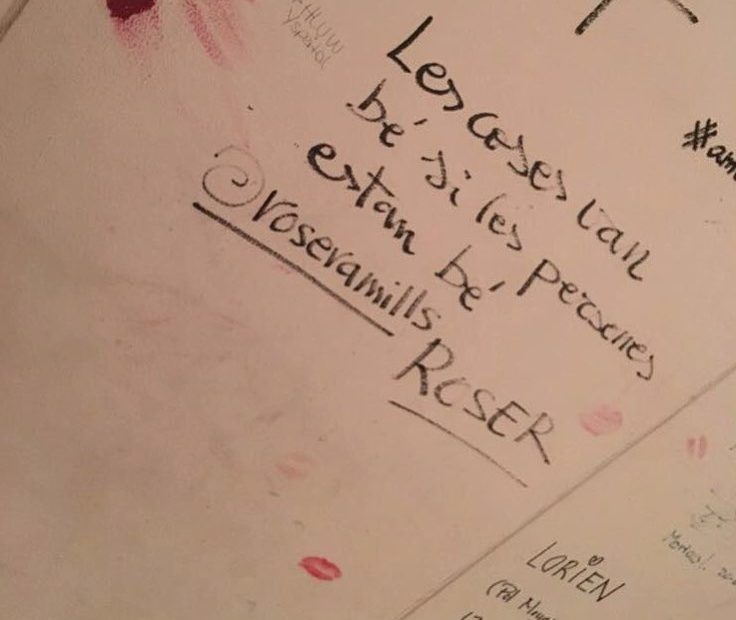 Les coses van
bé si les persones
estam bé
@roseramills
ROSER
#am
LORIEN